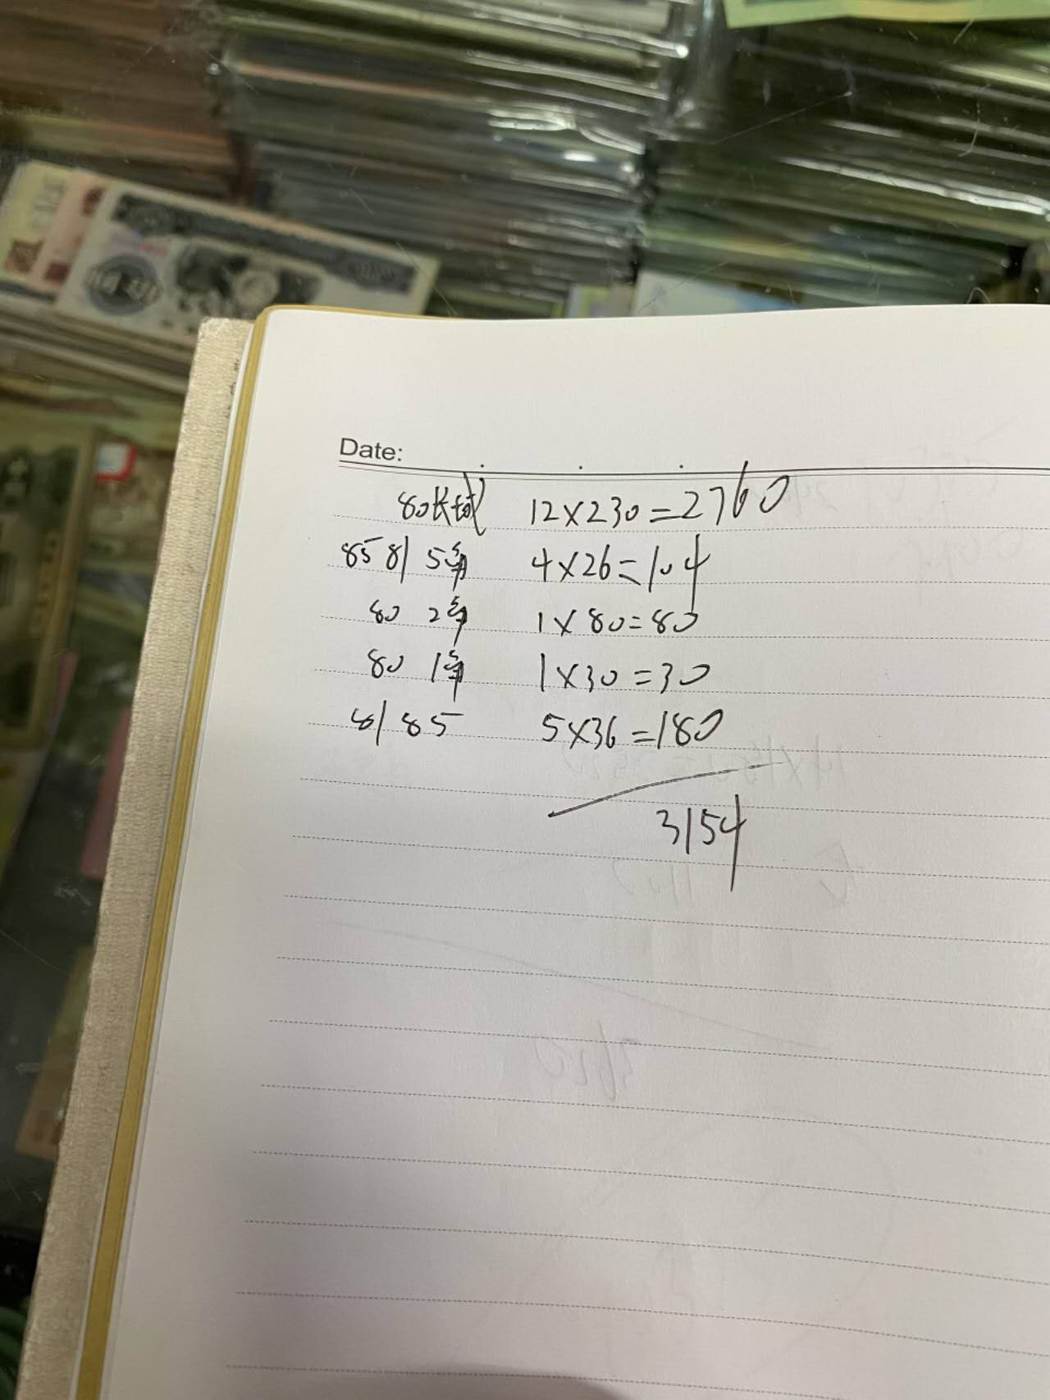 Date:
80长城 12×230=2760
85 81 5角 4×26=104
80 2角 1×80=80
80 1角 1×30=30
81 85 5×36=180
3154